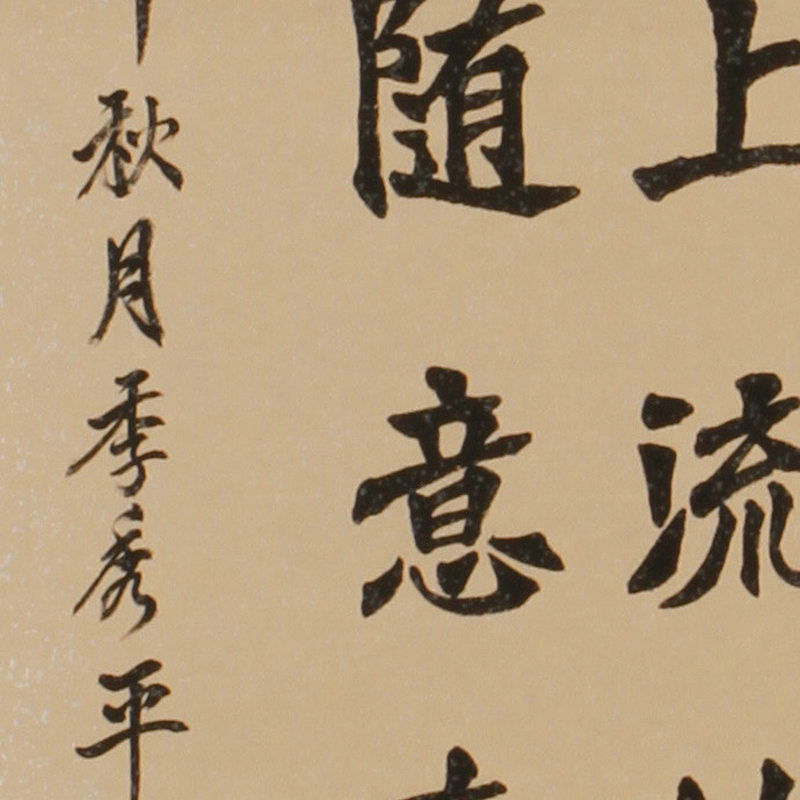 上流
随意
秋月季秀平